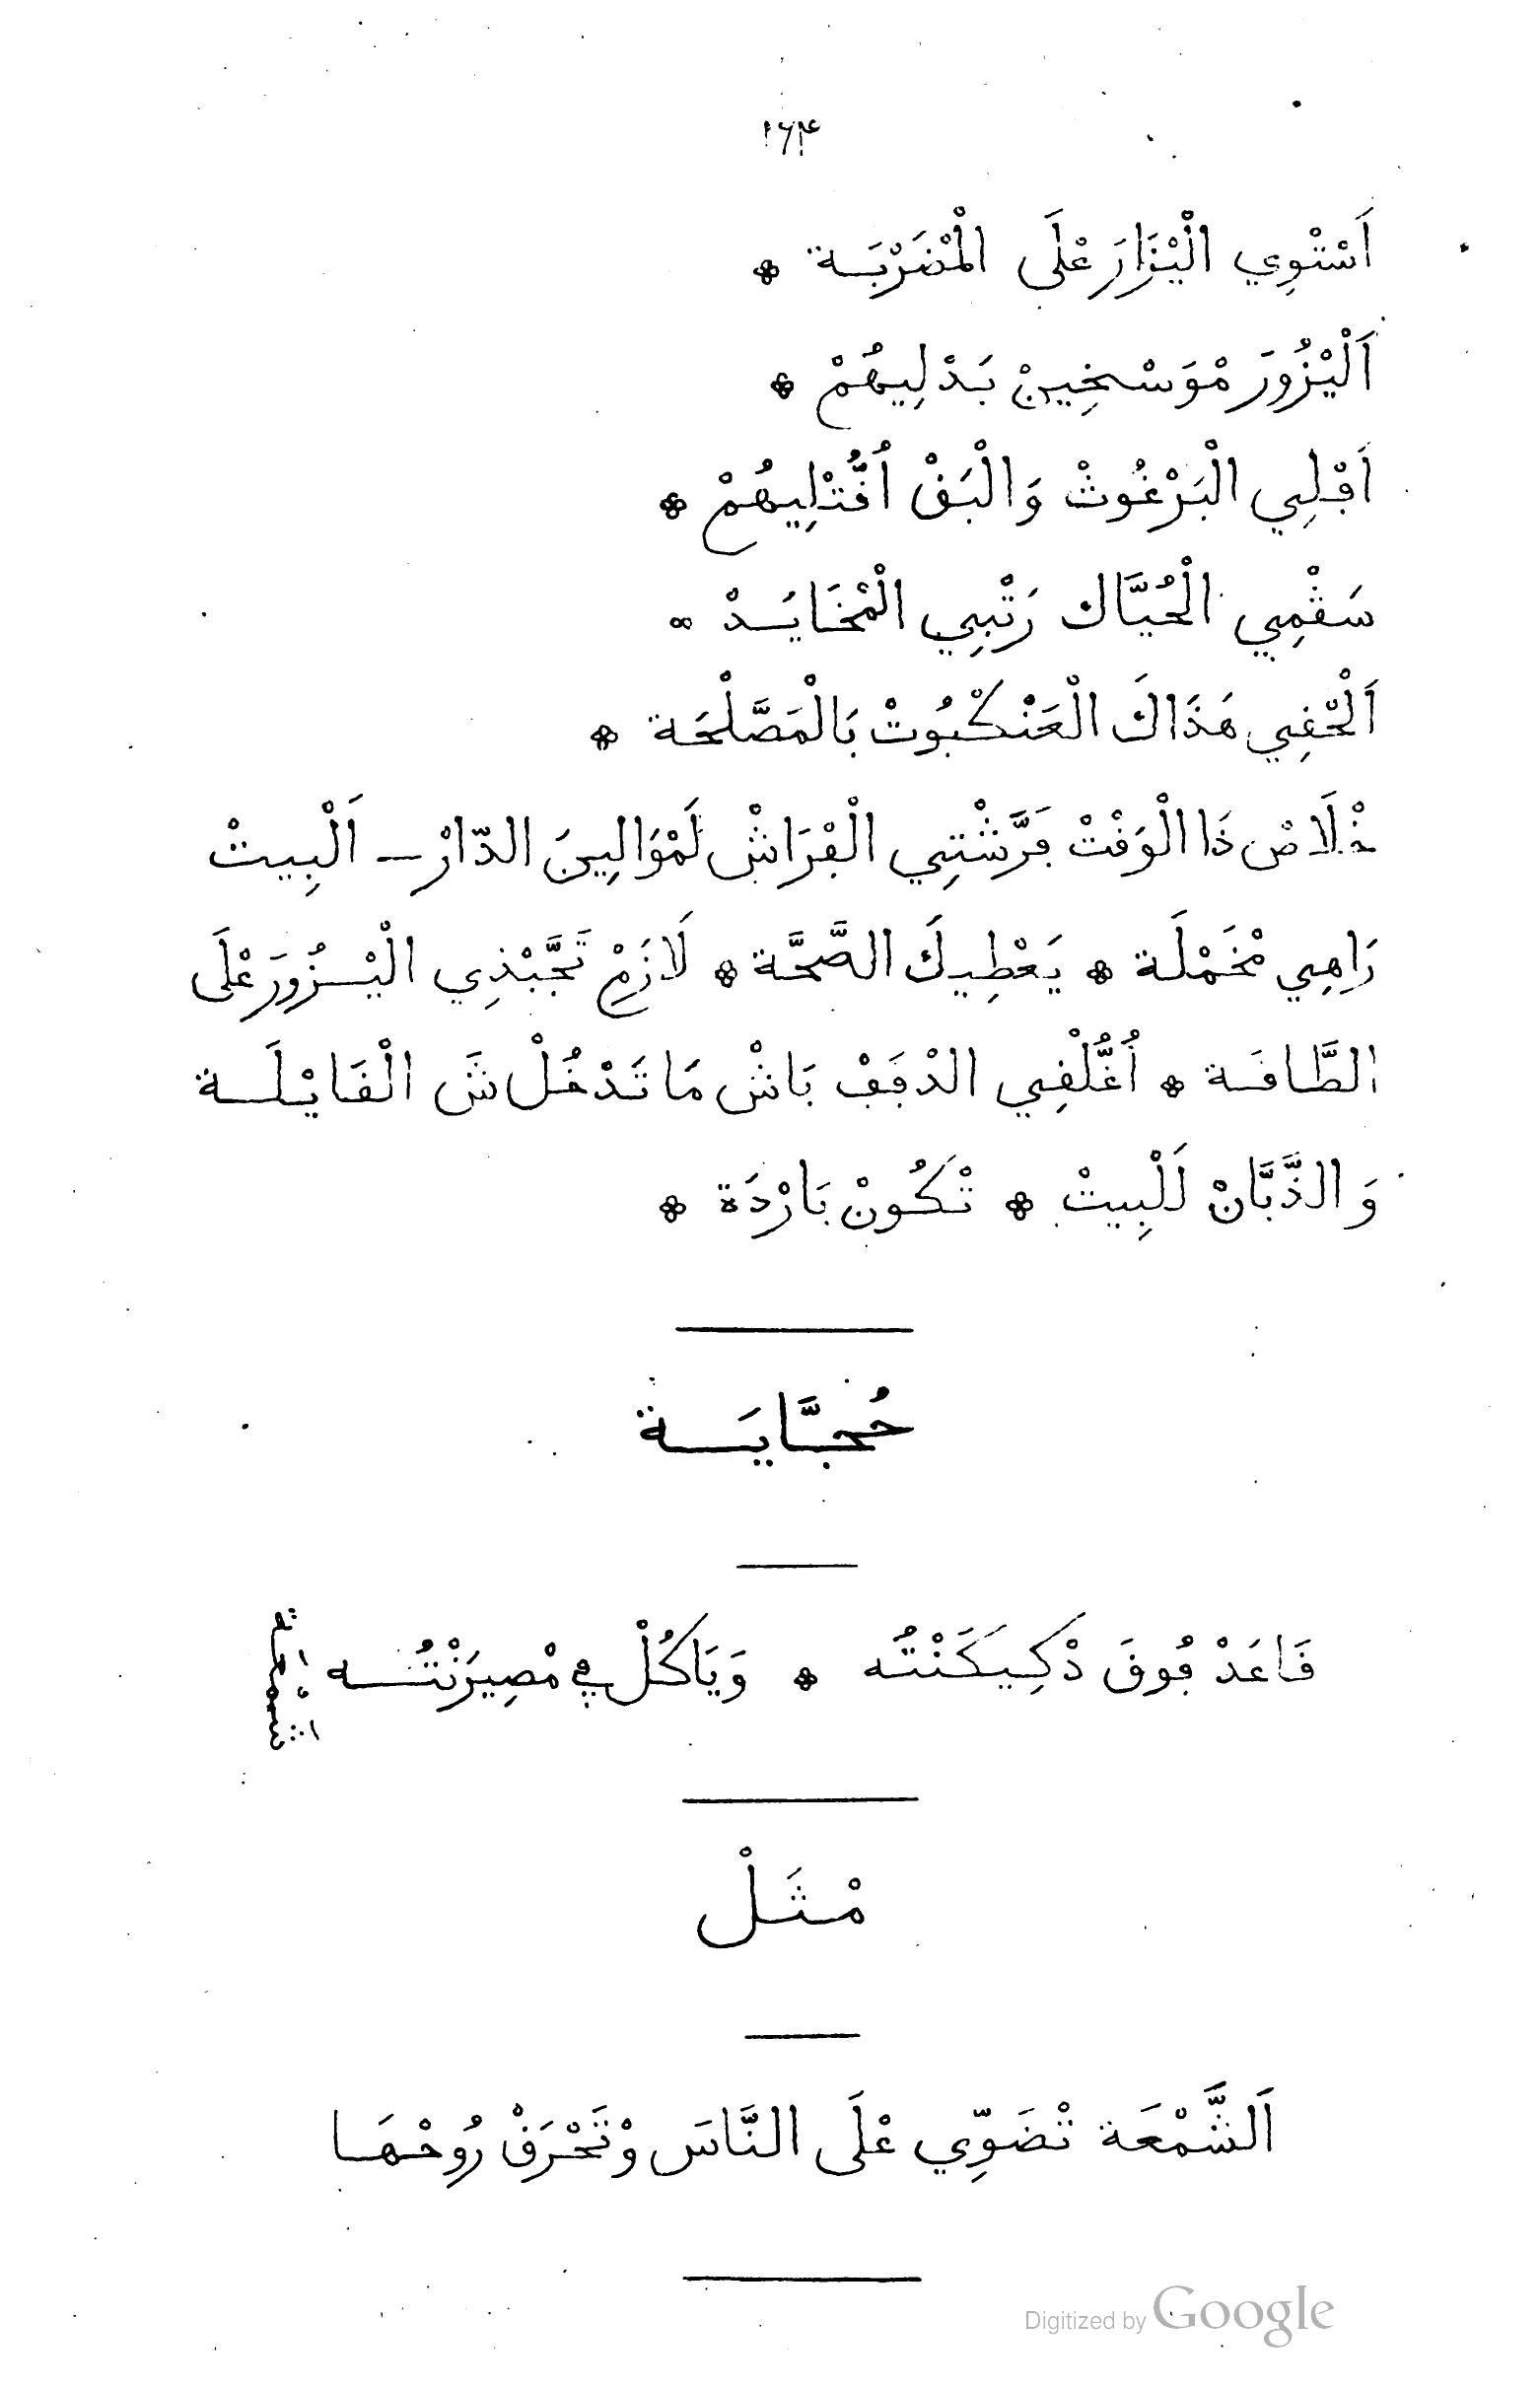 ١٦٤
اَسْتْوِي الْيْزَارَ عْلَى الْمْضَرْبَة *
اَلْيْزُورَ مْوَسْخِينْ بَدْلِيهُمْ *
اَفْلِي الْبَرْغُوثْ وَالْبَقْ اُقُّتْلِيهُمْ *
سَقْمِي الْحُيَّاك رَتْبِي الْمْخَايَدْ *
اَلْحْقِي هَذَاكَ الْعَنْكْبُوتْ بَالْمَصَّلْحَة *
خْلَاصْ ذَا الْوَقْتْ فَرَّشْتِي الْفْرَاشْ لَمْوَالِينَ الدّارْ — اَلْبِيتْ
رَاهِي مْخَمْلَة * يَعْطِيكَ الصَّحَّة * لَازَمْ تَجَّبْذِي الْيْزُورَ عْلَى
الطَّاقَة * اُغُّلْقِي الدْفَفْ بَاشْ مَا تَدْخُلْشَ الْقَايْلَة
وَالذَّبَّانْ لَلْبِيتْ * تْكُونْ بَارْدَة *
حُجَّايَة
قَاعَدْ فُوقَ دْكِيكَنْتُه * وَيَاكُلْ فِي مْصِيرَنْتُه
مْثَلْ
اَلشَّمْعَة تْضَوِّي عْلَى النَّاسَ وْتَحْرَقْ رُوحْهَا
Digitized by Google